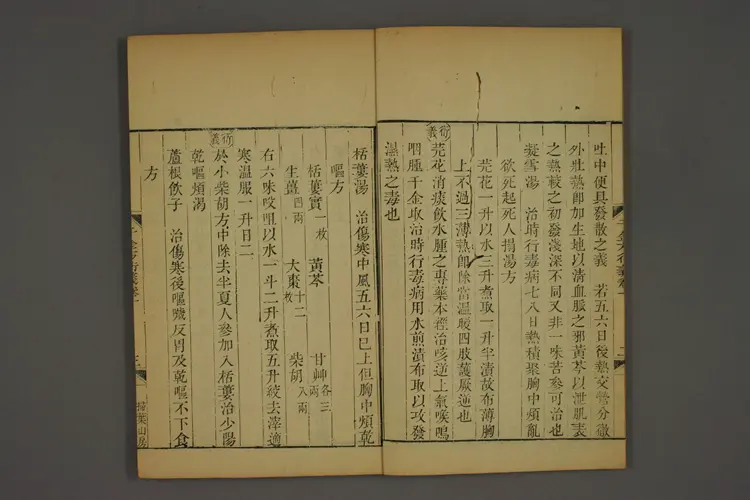 吐中便具發散之義　若五六日後熱交營分徹
外壯熱即加生地以清血脈之邪黃芩以泄肌表
之熱較之初發淺深不同又非一味苦參可治也
凝雪湯　治時行毒病七八日熱積聚胸中煩亂
欲死起死人搨湯方
芫花一升以水三升煮取一升半漬故布薄胸
上不過三薄熱即除當溫暖四肢護厥逆也
衍義
芫花消痰飲水腫之專藥本經治咳逆上氣喉鳴
咽腫千金取治時行毒病用水煎漬布取以攻發
濕熱之毒也
千金方衍義卷十
二
栝蔞湯　治傷寒中風五六日已上但胸中煩乾
嘔方
栝蔞實一枚　黃芩　甘艸各三兩
生薑四兩　大棗十二枚　柴胡八兩
右六味㕮咀以水一斗二升煮取五升絞去滓適
寒溫服一升日二
衍義
於小柴胡方中除去半夏人參加入栝蔞治少陽
乾嘔煩渴
蘆根飲子　治傷寒後嘔噦反胃及乾嘔不下食
方
三
掃葉山房